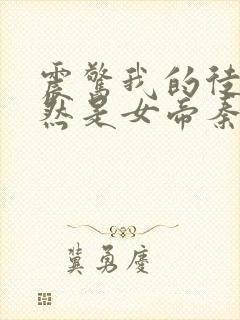 震惊我的徒
然是女帝秦
冀勇庆